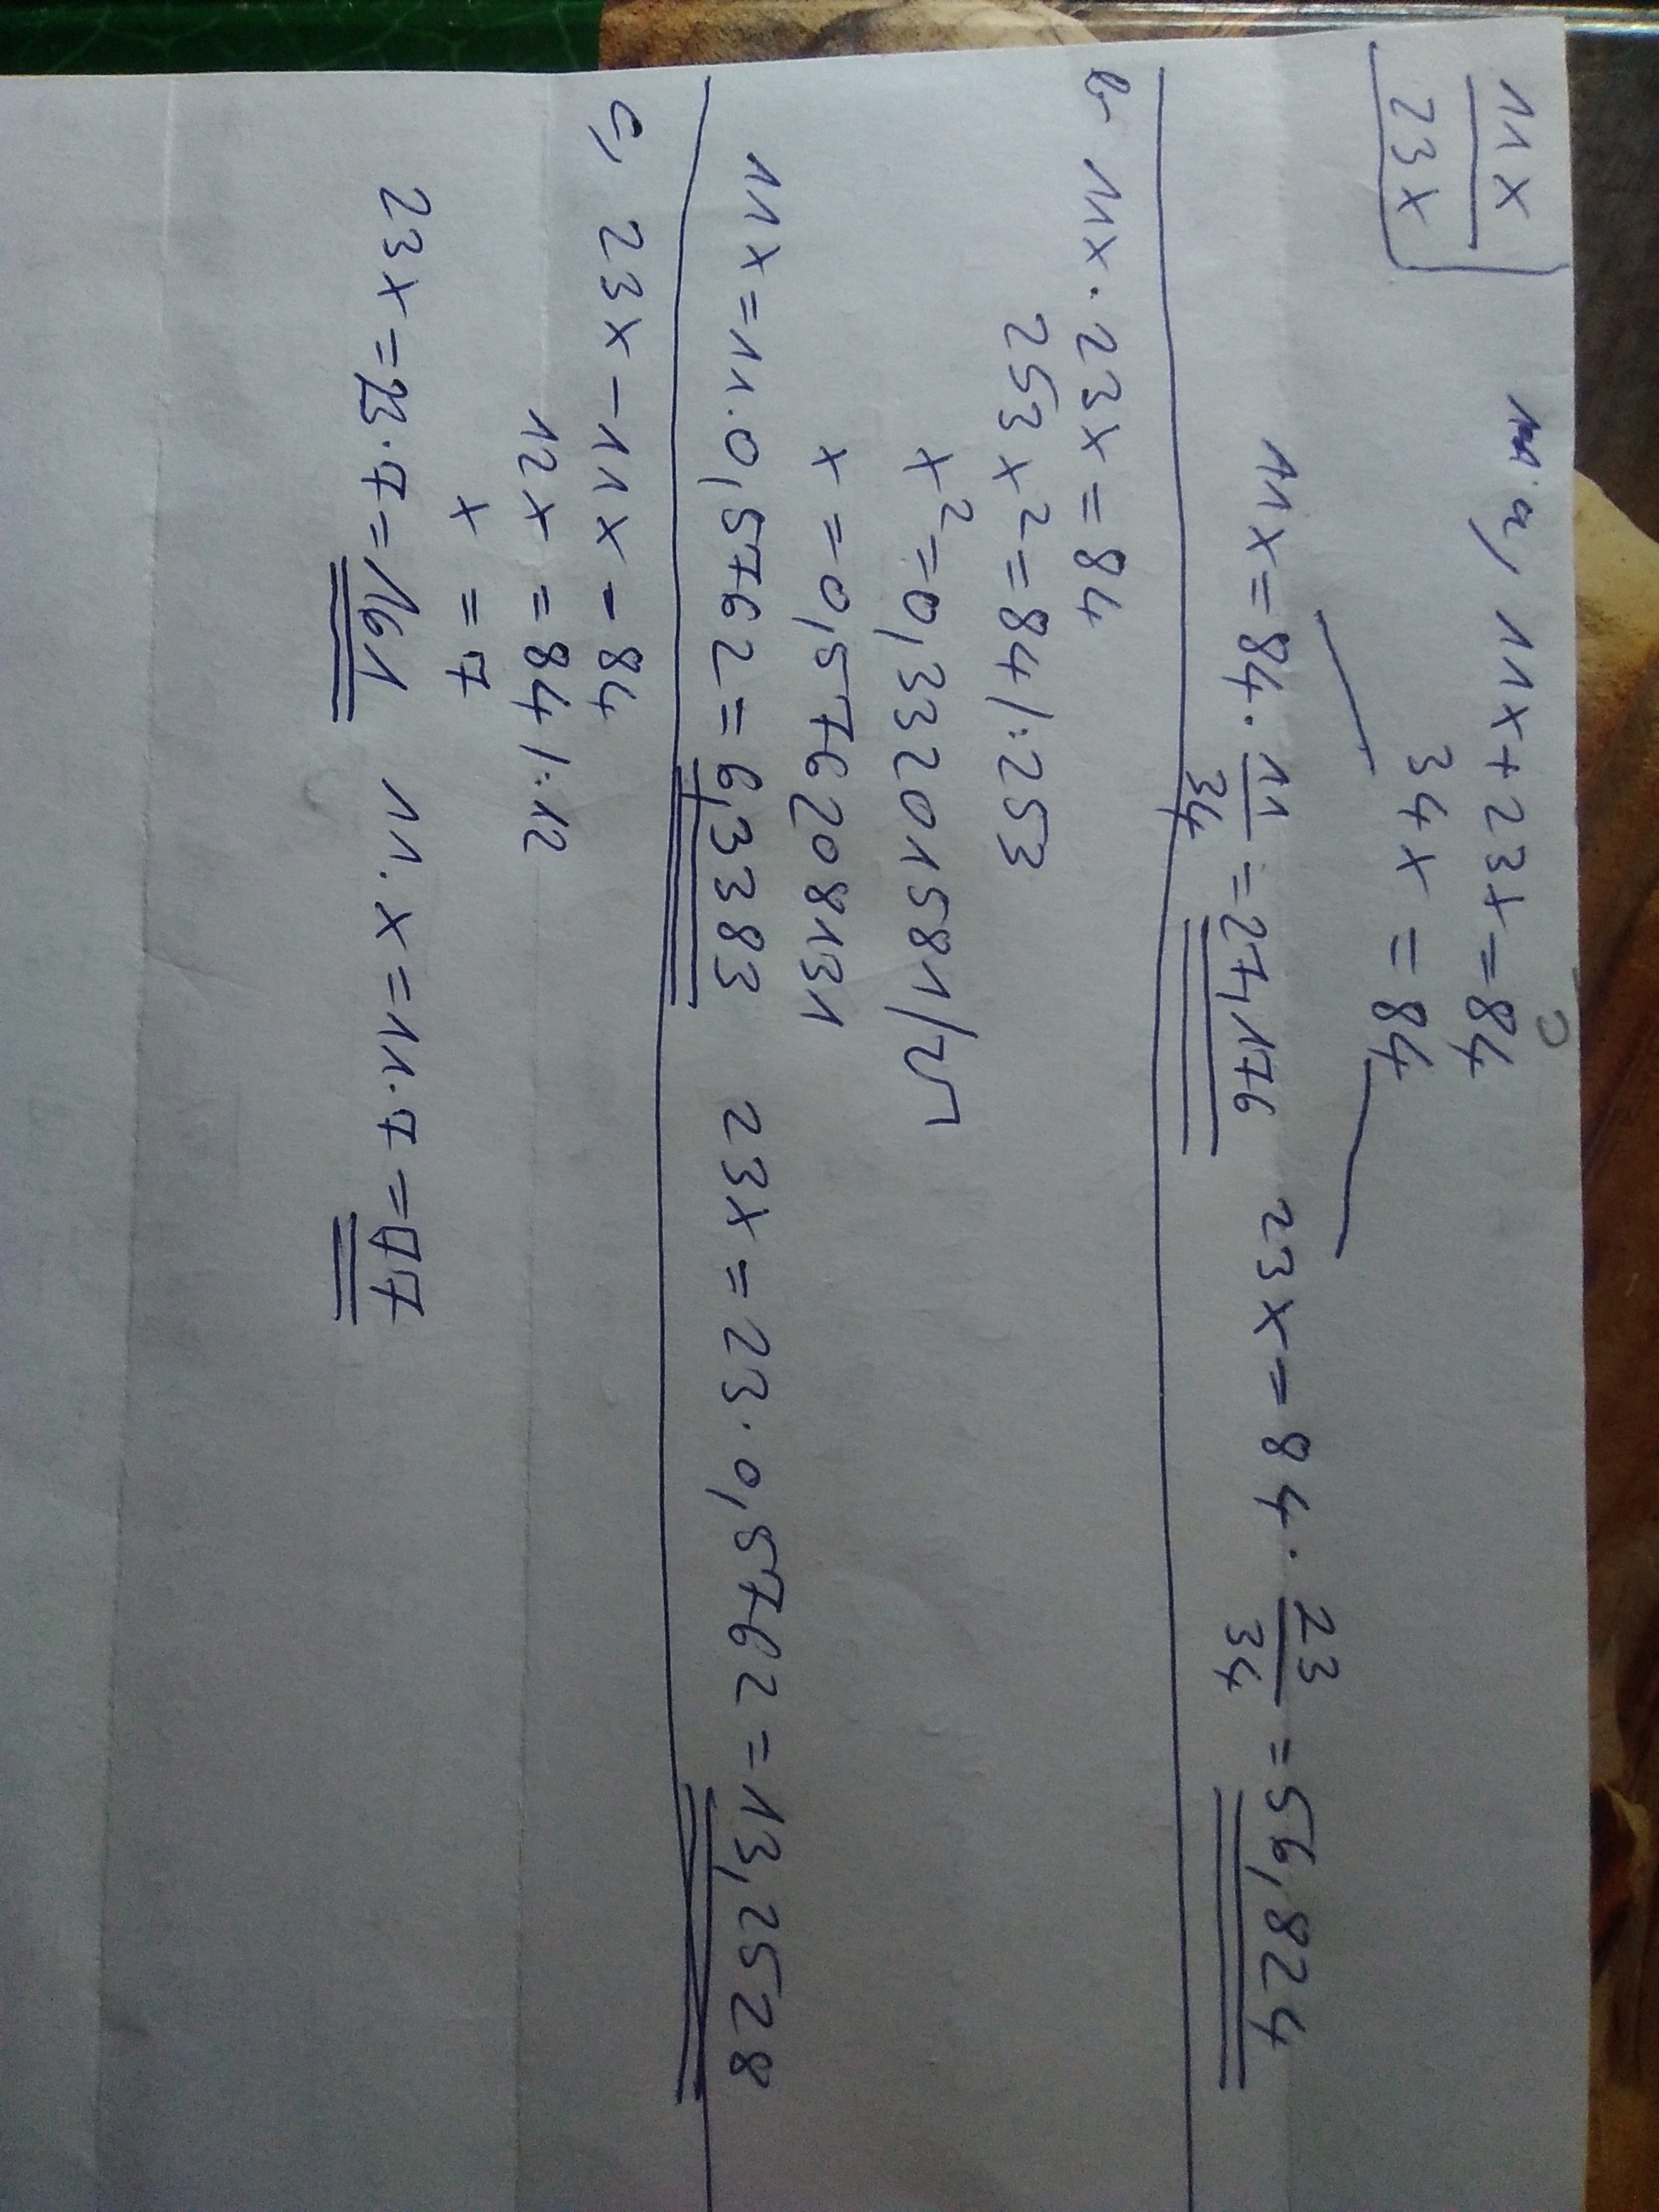 11x
23x
a, 11x+23x=84
34x=84
11x=84·11/34=27,176 23x=84·23/34=56,824
b 11x·23x=84
253x²=84/:253
x²=0,33201581/√
x=0,576208131
11x=11·0,5762=6,3383 23x=23·0,5762=13,2528
c, 23x-11x=84
12x=84/:12
x=7
23x=23·7=161 11·x=11·7=77